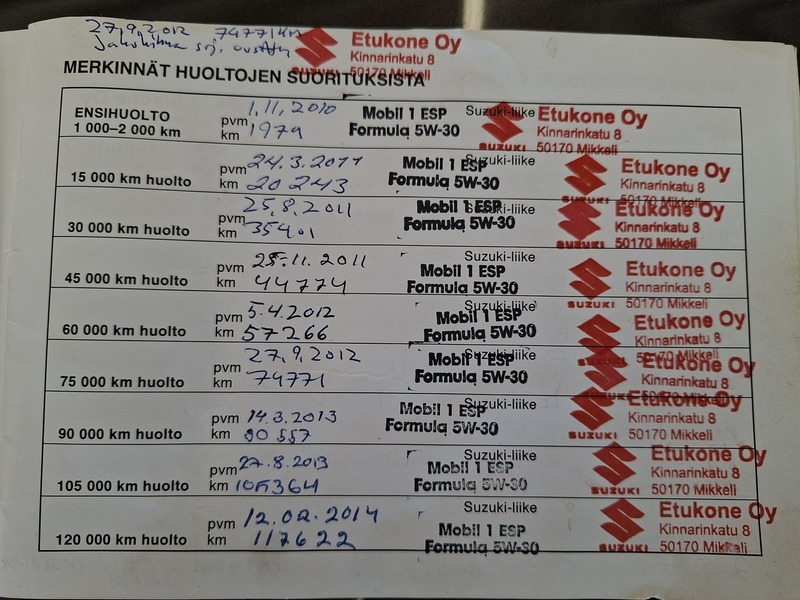 27.9.2012 74771 km
Etukone Oy
Kinnarinkatu 8
SUZUKI 50170 Mikkeli
MERKINNÄT HUOLTOJEN SUORITUKSISTA
ENSIHUOLTO
1 000–2 000 km
pvm 1.11.2010
km 1979
Mobil 1 ESP
Formula 5W-30
Suzuki-liike
Etukone Oy
Kinnarinkatu 8
SUZUKI 50170 Mikkeli
15 000 km huolto
pvm 24.3.2011
km 20243
Mobil 1 ESP
Formula 5W-30
Suzuki-liike
Etukone Oy
Kinnarinkatu 8
SUZUKI 50170 Mikkeli
30 000 km huolto
pvm 25.8.2011
km 35401
Mobil 1 ESP
Formula 5W-30
Suzuki-liike
Etukone Oy
Kinnarinkatu 8
SUZUKI 50170 Mikkeli
45 000 km huolto
pvm 25.11.2011
km 44774
Mobil 1 ESP
Formula 5W-30
Suzuki-liike
Etukone Oy
Kinnarinkatu 8
SUZUKI 50170 Mikkeli
60 000 km huolto
pvm 5.4.2012
km 57266
Mobil 1 ESP
Formula 5W-30
Suzuki-liike
Etukone Oy
Kinnarinkatu 8
SUZUKI 50170 Mikkeli
75 000 km huolto
pvm 27.9.2012
km 74771
Mobil 1 ESP
Formula 5W-30
Suzuki-liike
Etukone Oy
Kinnarinkatu 8
SUZUKI 50170 Mikkeli
90 000 km huolto
pvm 14.3.2013
km 90557
Mobil 1 ESP
Formula 5W-30
Suzuki-liike
Etukone Oy
Kinnarinkatu 8
SUZUKI 50170 Mikkeli
105 000 km huolto
pvm 27.8.2013
km 105364
Mobil 1 ESP
Formula 5W-30
Suzuki-liike
Etukone Oy
Kinnarinkatu 8
SUZUKI 50170 Mikkeli
120 000 km huolto
pvm 12.02.2014
km 117622
Mobil 1 ESP
Formula 5W-30
Suzuki-liike
Etukone Oy
Kinnarinkatu 8
SUZUKI 50170 Mikkeli